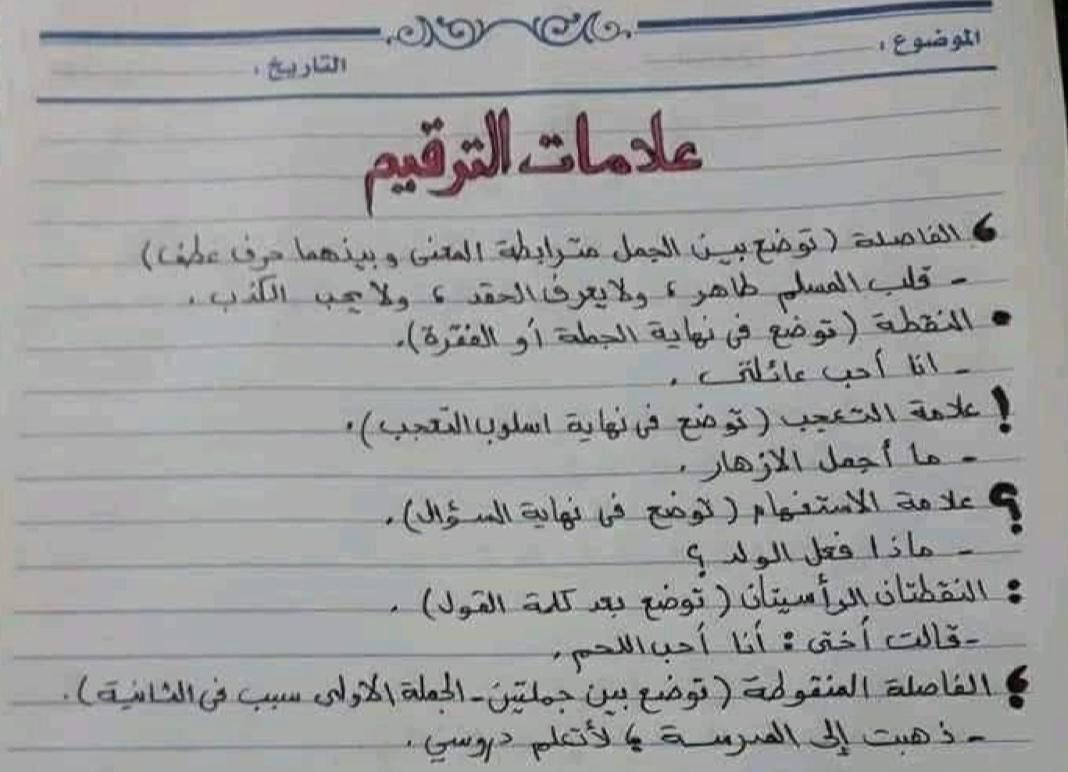 الموضوع :
التاريخ :
علامات الترقيم
، الفاصلة (توضع بين الجمل مترابطة المعنى وبينهما حرف عطف)
- قلب المسلم طاهر ، ولا يعرف الحقد ، ولا يحب الكذب .
. النقطة (توضع فى نهاية الجملة أو الفقرة).
- انا أحب عائلتى .
! علامة التعجب (توضع فى نهاية اسلوب التعجب).
- ما أجمل الازهار .
؟ علامة الاستفهام (توضع فى نهاية السؤال).
- ماذا فعل الولد ؟
: النقطتان الرأسيتان (توضع بعد كلمة القول) .
- قالت أختى : أنا أحب اللحم .
؛ الفاصلة المنقوطة (توضع بين جملتين - الجملة الاولى سبب فى الثانية).
- ذهبت إلى المدرسة ؛ لأتعلم دروسي .